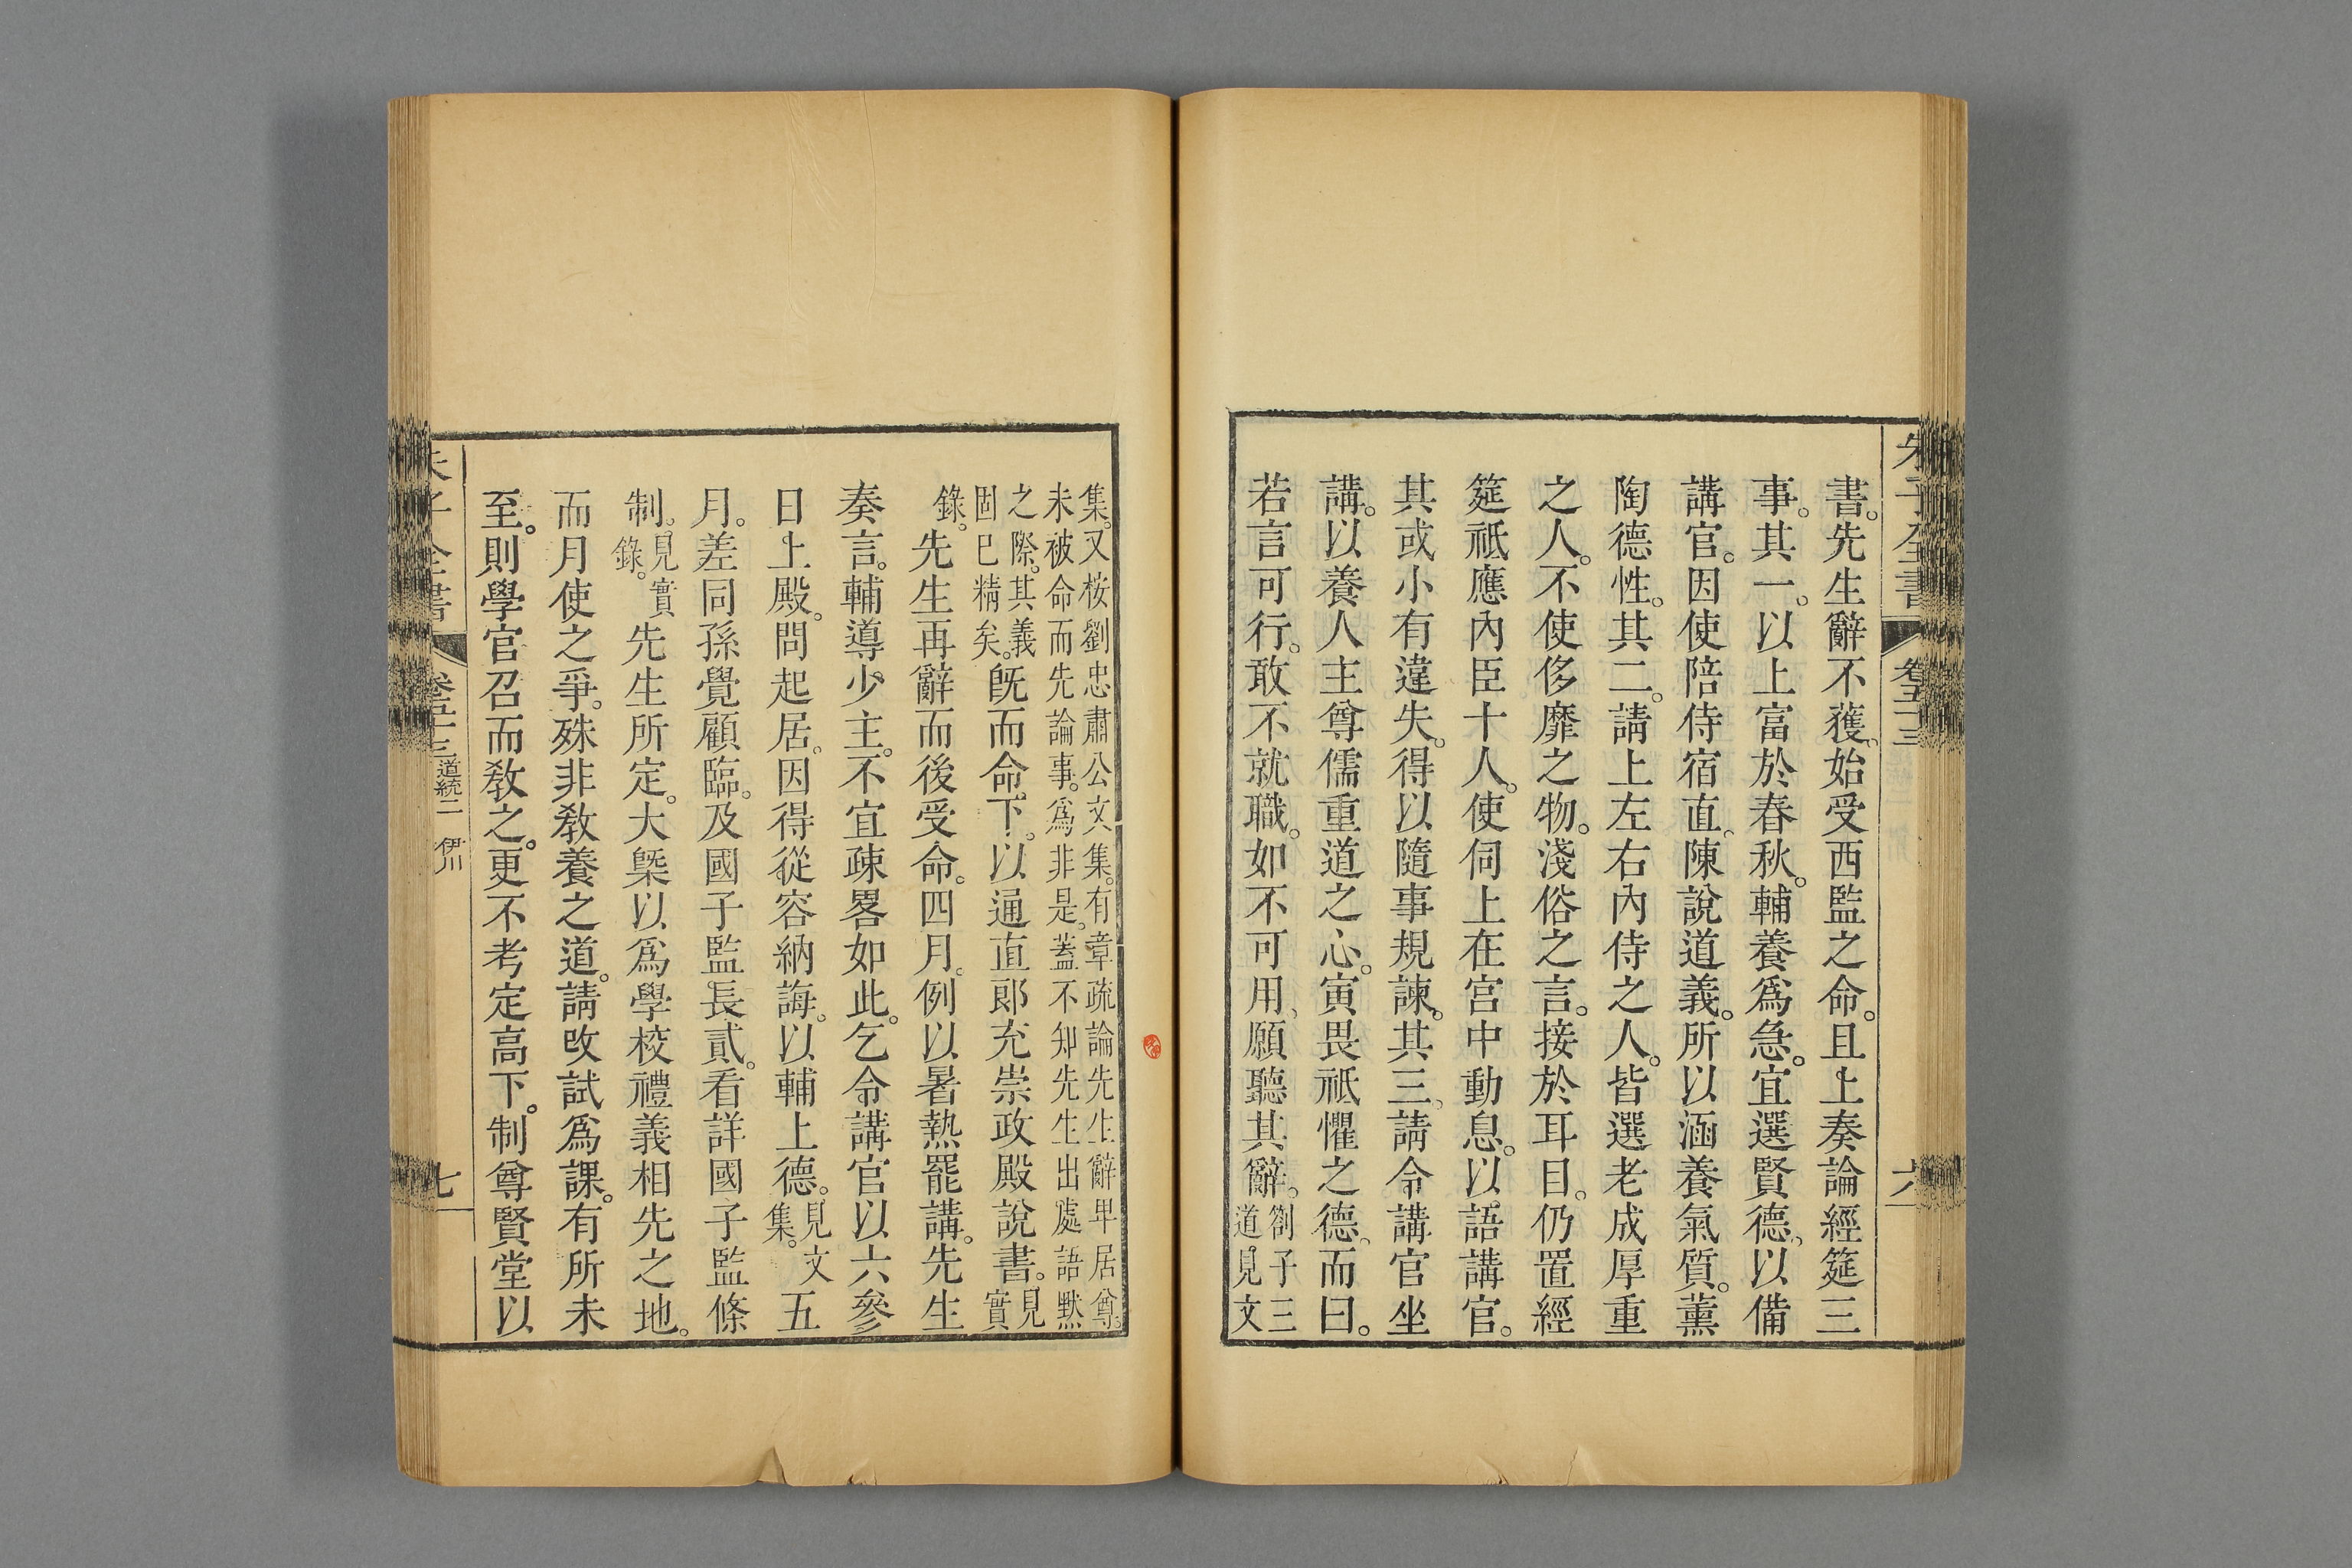 朱子全書　卷五十三　六
書。先生辭不獲、始受西監之命。且上奏論經筵三
事。其一。以上富於春秋。輔養爲急。宜選賢德、以備
講官。因使陪侍宿直。陳說道義。所以涵養氣質。薰
陶德性。其二。請上左右內侍之人。皆選老成厚重
之人。不使侈靡之物。淺俗之言。接於耳目。仍置經
筵祗應內臣十人。使伺上在宮中動息。以語講官。
其或小有違失。得以隨事規諫。其三。請令講官坐
講。以養人主尊儒重道之心。寅畏祗懼之德。而曰。
若言可行。敢不就職。如不可用、願聽其辭。劄子三
道。見文
集。又桉劉忠肅公文集。有章疏論先生辭卑居尊。
未被命而先論事。爲非是。蓋不知先生出處語默
之際。其義
固已精矣。旣而命下。以通直郞充崇政殿說書。見
實
錄。先生再辭而後受命。四月。例以暑熱罷講。先生
奏言。輔導少主。不宜疎畧如此。乞令講官以六參
日上殿。問起居。因得從容納誨。以輔上德。見文
集。五
月。差同孫覺顧臨。及國子監長貳。看詳國子監條
制。見實
錄。先生所定。大槩以爲學校禮義相先之地。
而月使之爭。殊非敎養之道。請改試爲課。有所未
至。則學官召而敎之。更不考定高下。制尊賢堂以
朱子全書　卷五十三　道統二　伊川　七